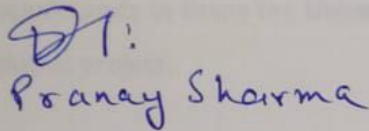 Pranay Sharma